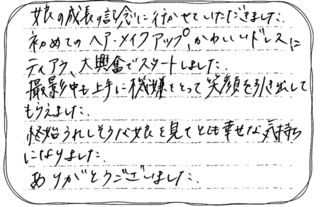 娘の成長の記念に行かせていただきました。
初めてのヘア・メイクアップ、かわいいドレスに
ティアラ、大興奮でスタートしました。
撮影中も上手に機嫌をとって笑顔を引き出して
もらえました。
終始うれしそうな娘を見てとても幸せな気持ち
になりました。
ありがとうございました。